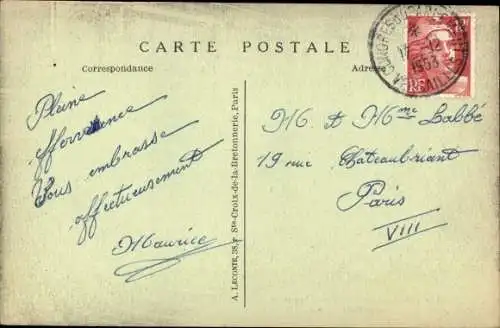 CARTE POSTALE
Correspondance
Adresse
17-12
1953
RF
Pleine
effervescence
Vous embrasse
affectueusement
Maurice
A. LECONTE, 38, r. Ste-Croix-de-la-Bretonnerie, Paris
M. et Mme Labbé
19 rue Chateaubriant
Paris
VIII